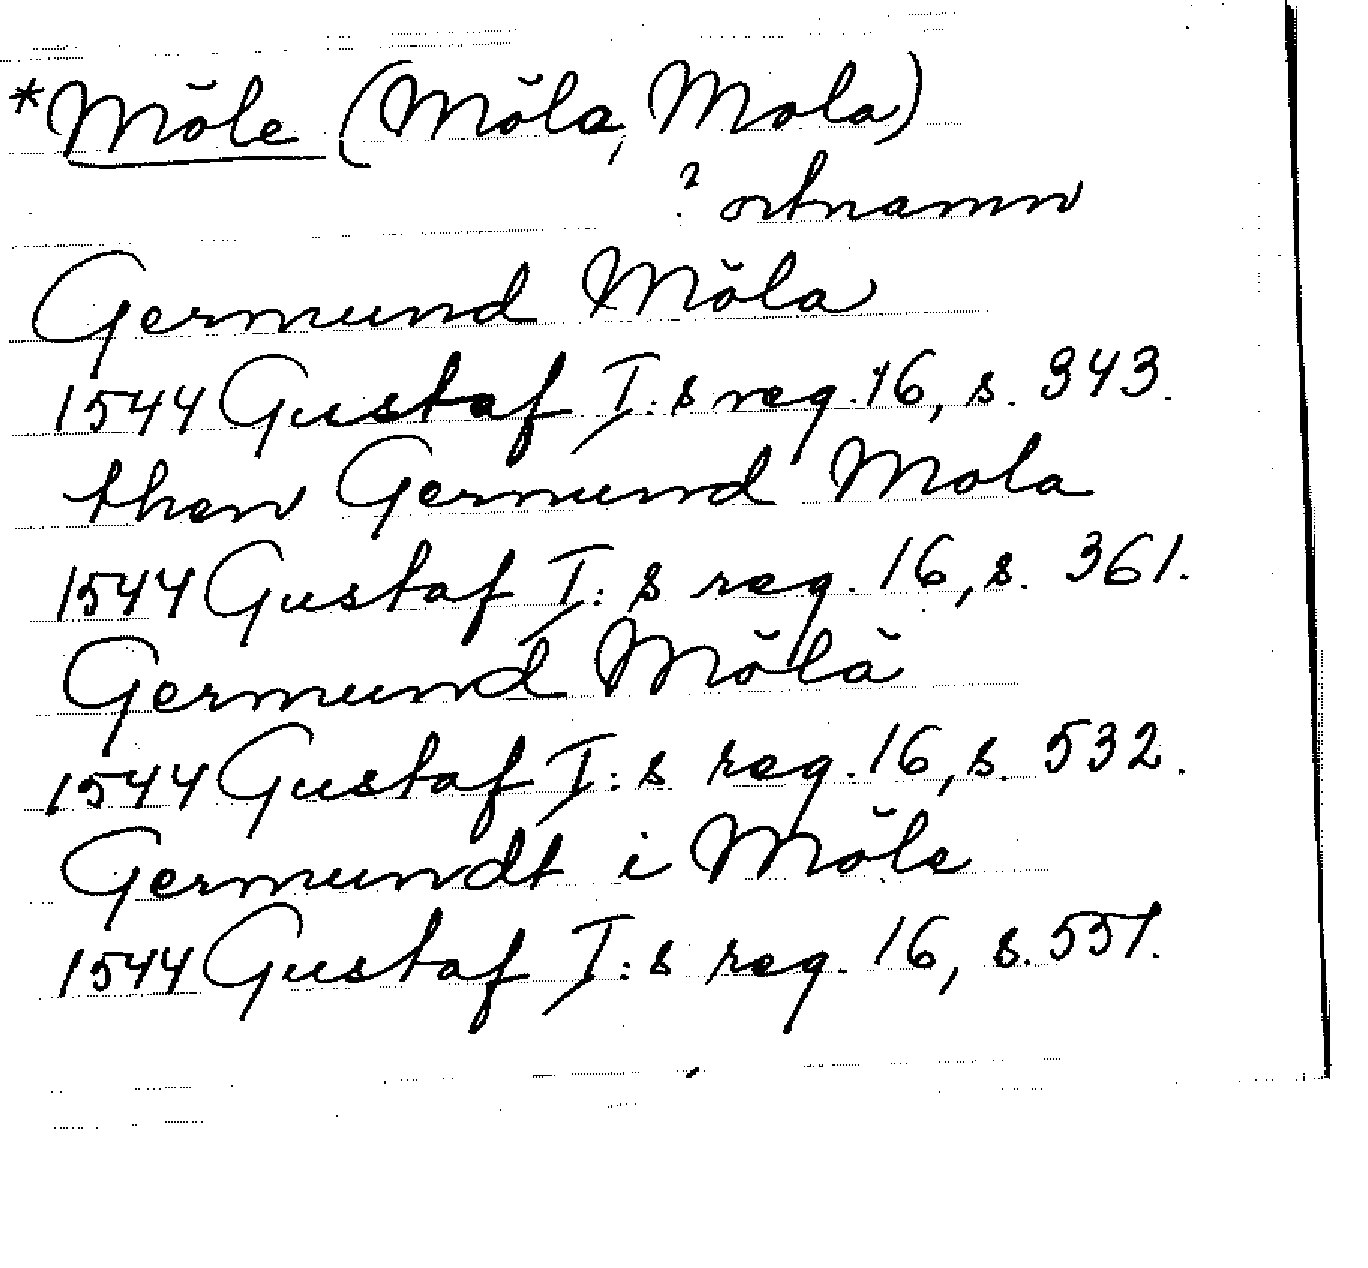 *Möle (Möla, Mola)
? ortnamn
Germund Möla
1544 Gustaf I:s reg. 16, s. 343.
then Germund Mola
1544 Gustaf I:s reg. 16, s. 361.
Germund Mölä
1544 Gustaf I:s reg. 16, s. 532.
Germundt i Möle
1544 Gustaf I:s reg. 16, s. 551.